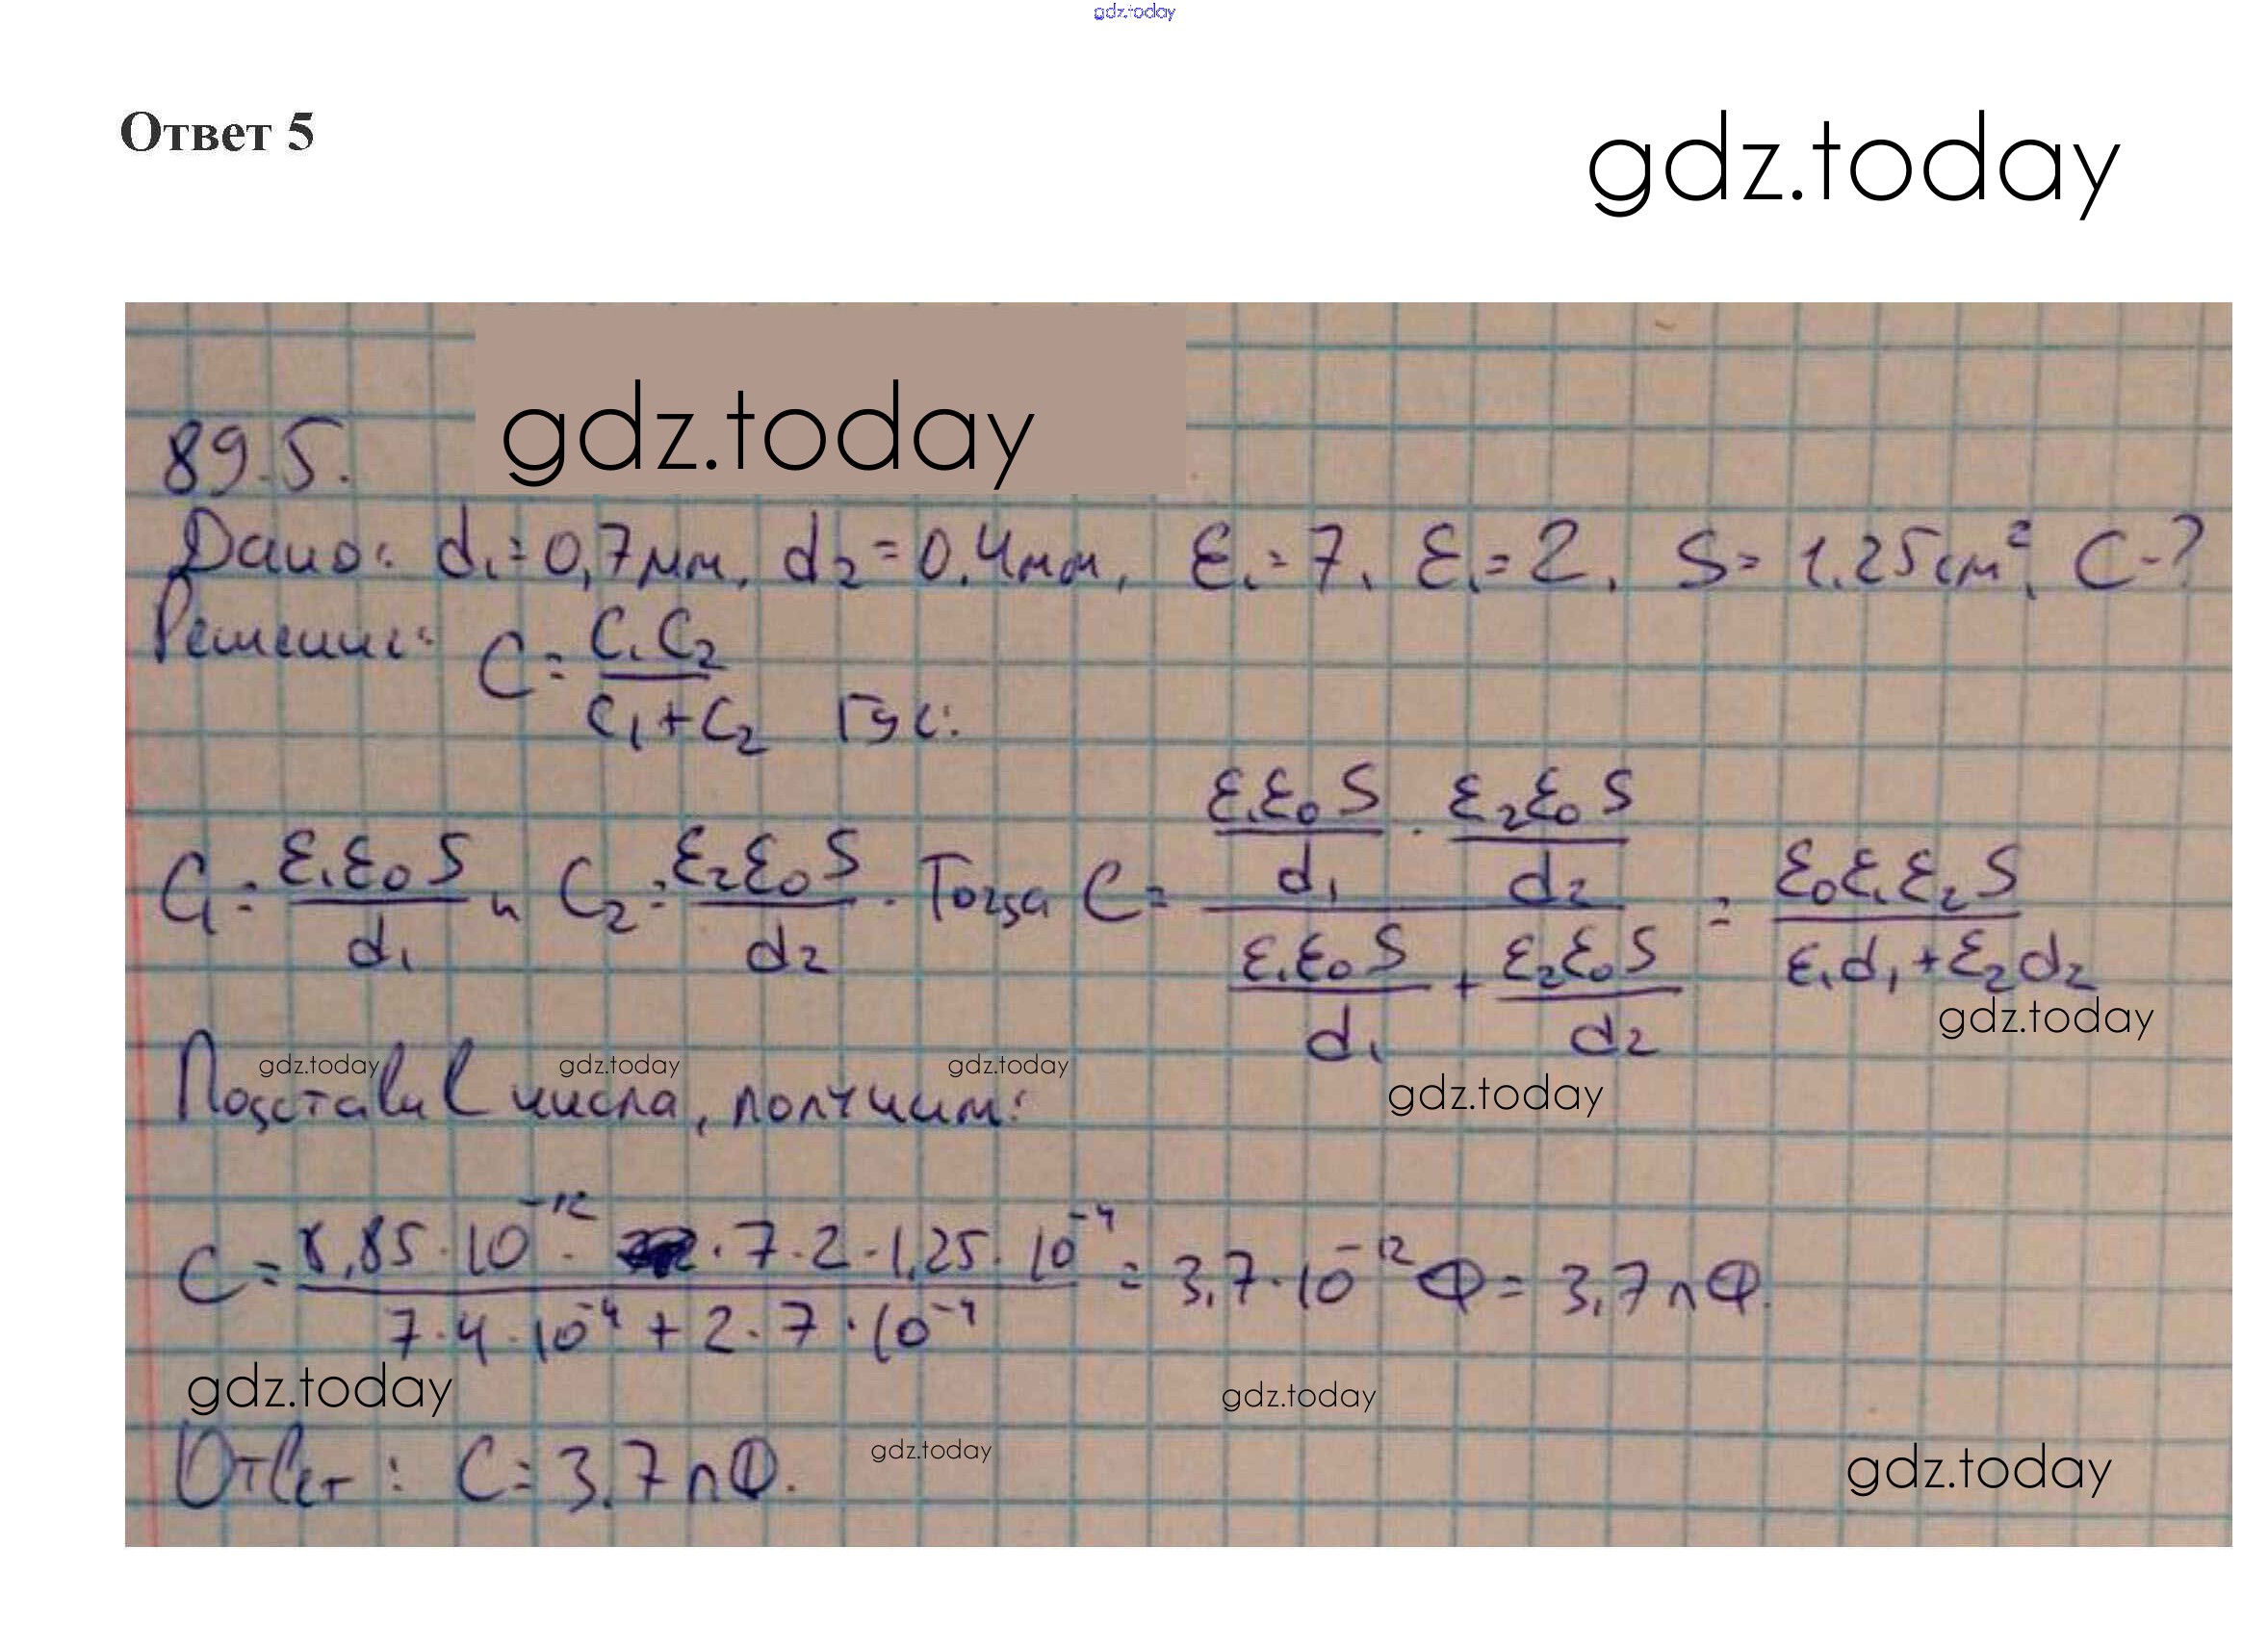 gdz.today
Ответ 5
gdz.today
gdz.today
89.5.
Дано: d₁=0,7мм, d₂=0.4мм, ε₁=7, ε₁=2, S=1.25см², C-?
Решение: C = C₁C₂ / C₁+C₂ Где:
C₁ = ε₁ε₀S / d₁ и C₂ = ε₂ε₀S / d₂. Тогда C = (ε₁ε₀S / d₁ · ε₂ε₀S / d₂) / (ε₁ε₀S / d₁ + ε₂ε₀S / d₂) = ε₀ε₁ε₂S / ε₁d₁+ε₂d₂
gdz.today
gdz.today gdz.today gdz.today
gdz.today
Подставив числа, получим:
C = 8,85·10⁻¹² · · 7·2·1,25·10⁻⁴ / 7·4·10⁻⁴ + 2·7·10⁻⁴ = 3,7·10⁻¹² Ф = 3,7 пФ.
gdz.today gdz.today
Ответ: C = 3.7 пФ.
gdz.today
gdz.today